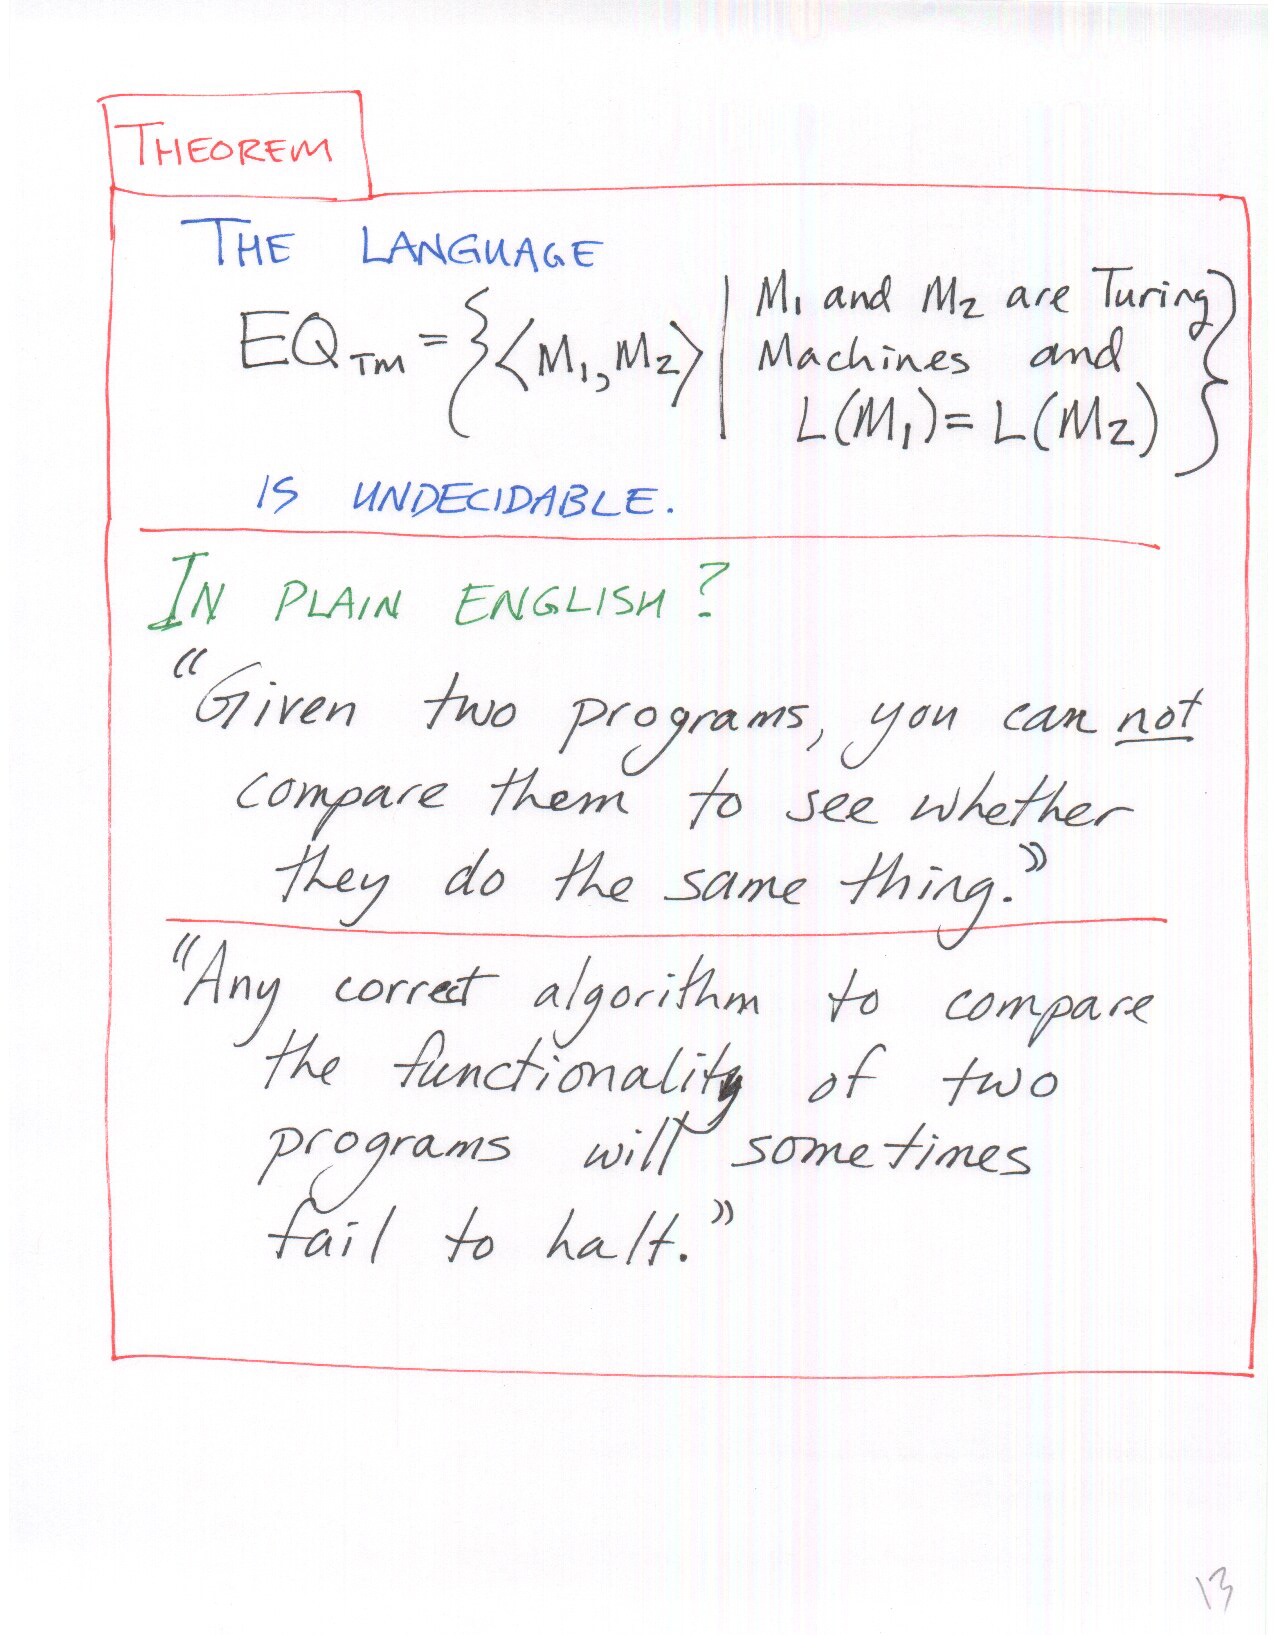 THEOREM
THE LANGUAGE
EQ_TM = {⟨M₁, M₂⟩ | M₁ and M₂ are Turing
Machines and
L(M₁) = L(M₂)}
IS UNDECIDABLE.
IN PLAIN ENGLISH?
"Given two programs, you can not
compare them to see whether
they do the same thing."
"Any correct algorithm to compare
the functionality of two
programs will sometimes
fail to halt."
13